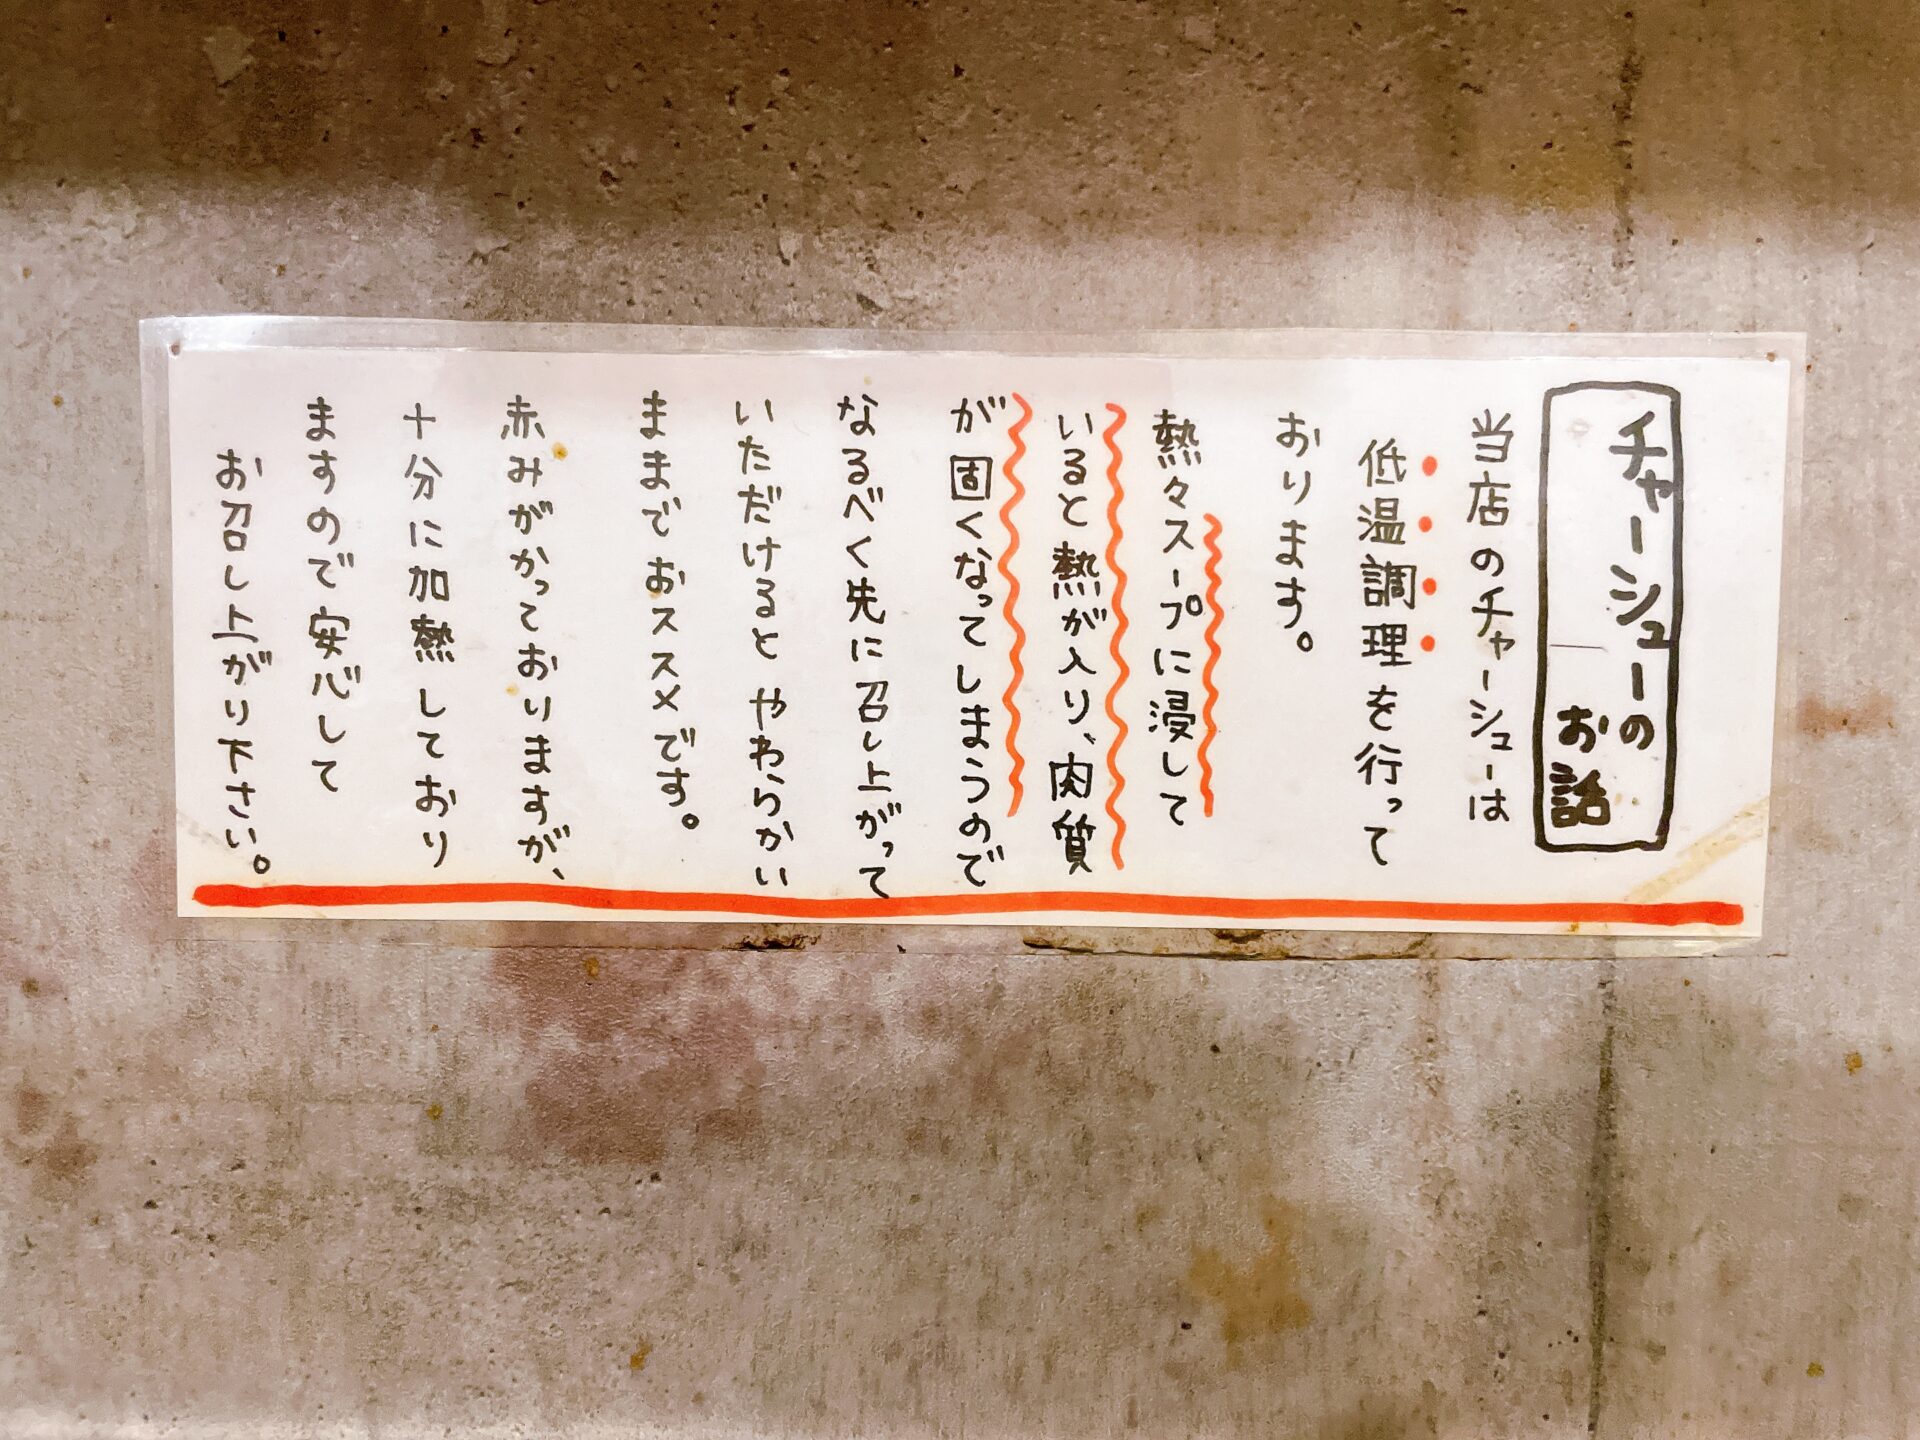 チャーシューの
お話
当店のチャーシューは
低温調理を行って
おります。
熱々スープに浸して
いると熱が入り、肉質
が固くなってしまうので
なるべく先に召し上がって
いただけると やわらかい
ままで おススメです。
赤みがかっておりますが、
十分に加熱しており
ますので安心して
お召し上がり下さい。